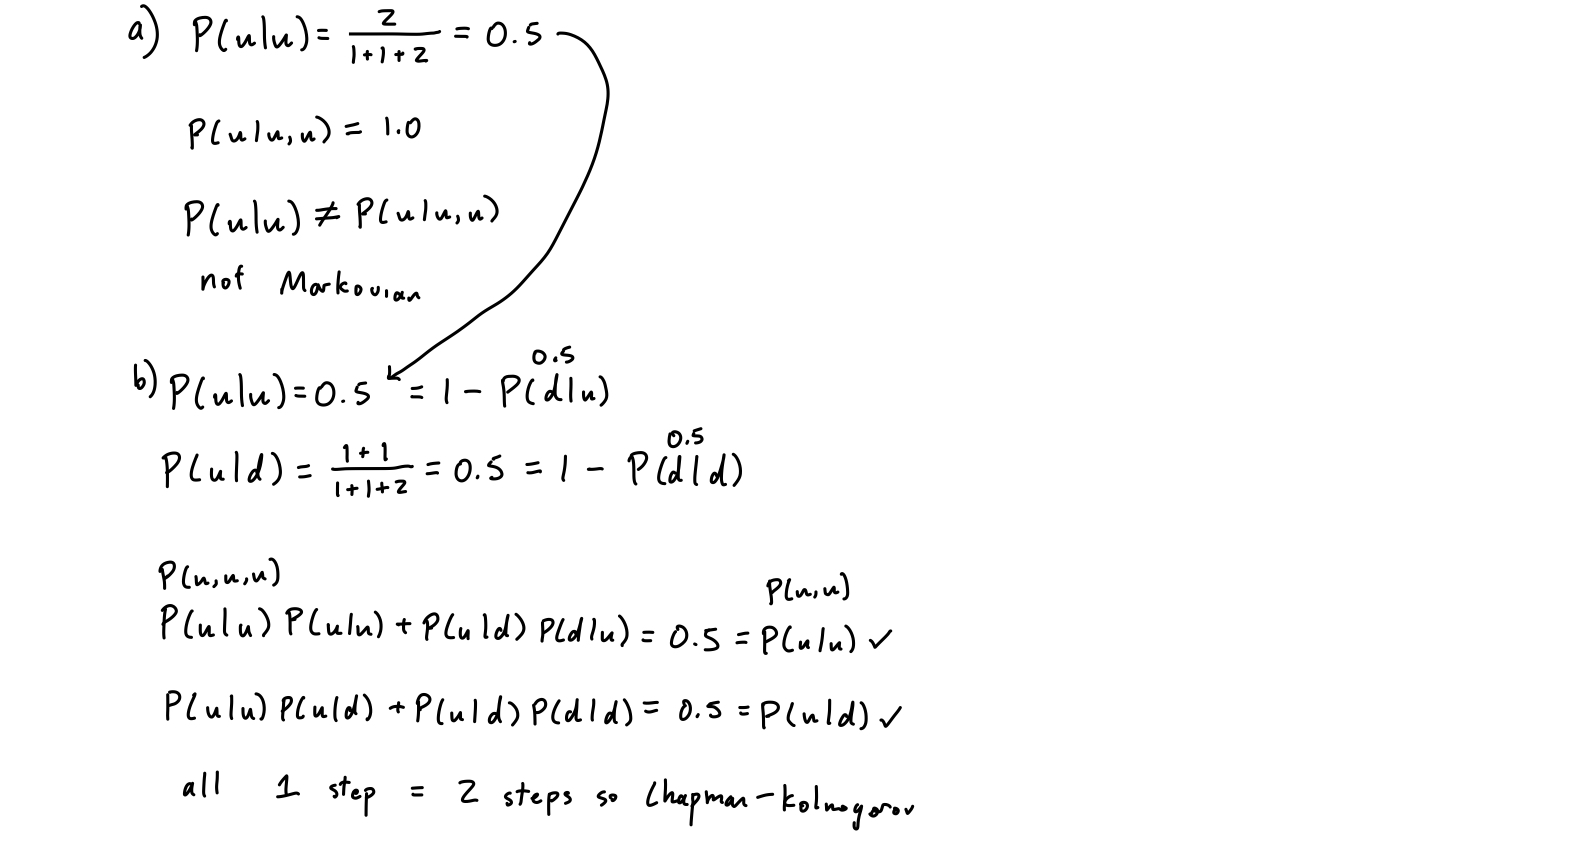 a) P(u|u) = 2/(1+1+2) = 0.5
P(u|u,u) = 1.0
P(u|u) ≠ P(u|u,u)
not Markovian
b) P(u|u) = 0.5 = 1 - P(d|u)
0.5
P(u|d) = (1+1)/(1+1+2) = 0.5 = 1 - P(d|d)
0.5
P(u,u,u)
P(u,u)
P(u|u) P(u|u) + P(u|d) P(d|u) = 0.5 = P(u|u) ✓
P(u|u) P(u|d) + P(u|d) P(d|d) = 0.5 = P(u|d) ✓
all 1 step = 2 steps so Chapman-kolmogorov